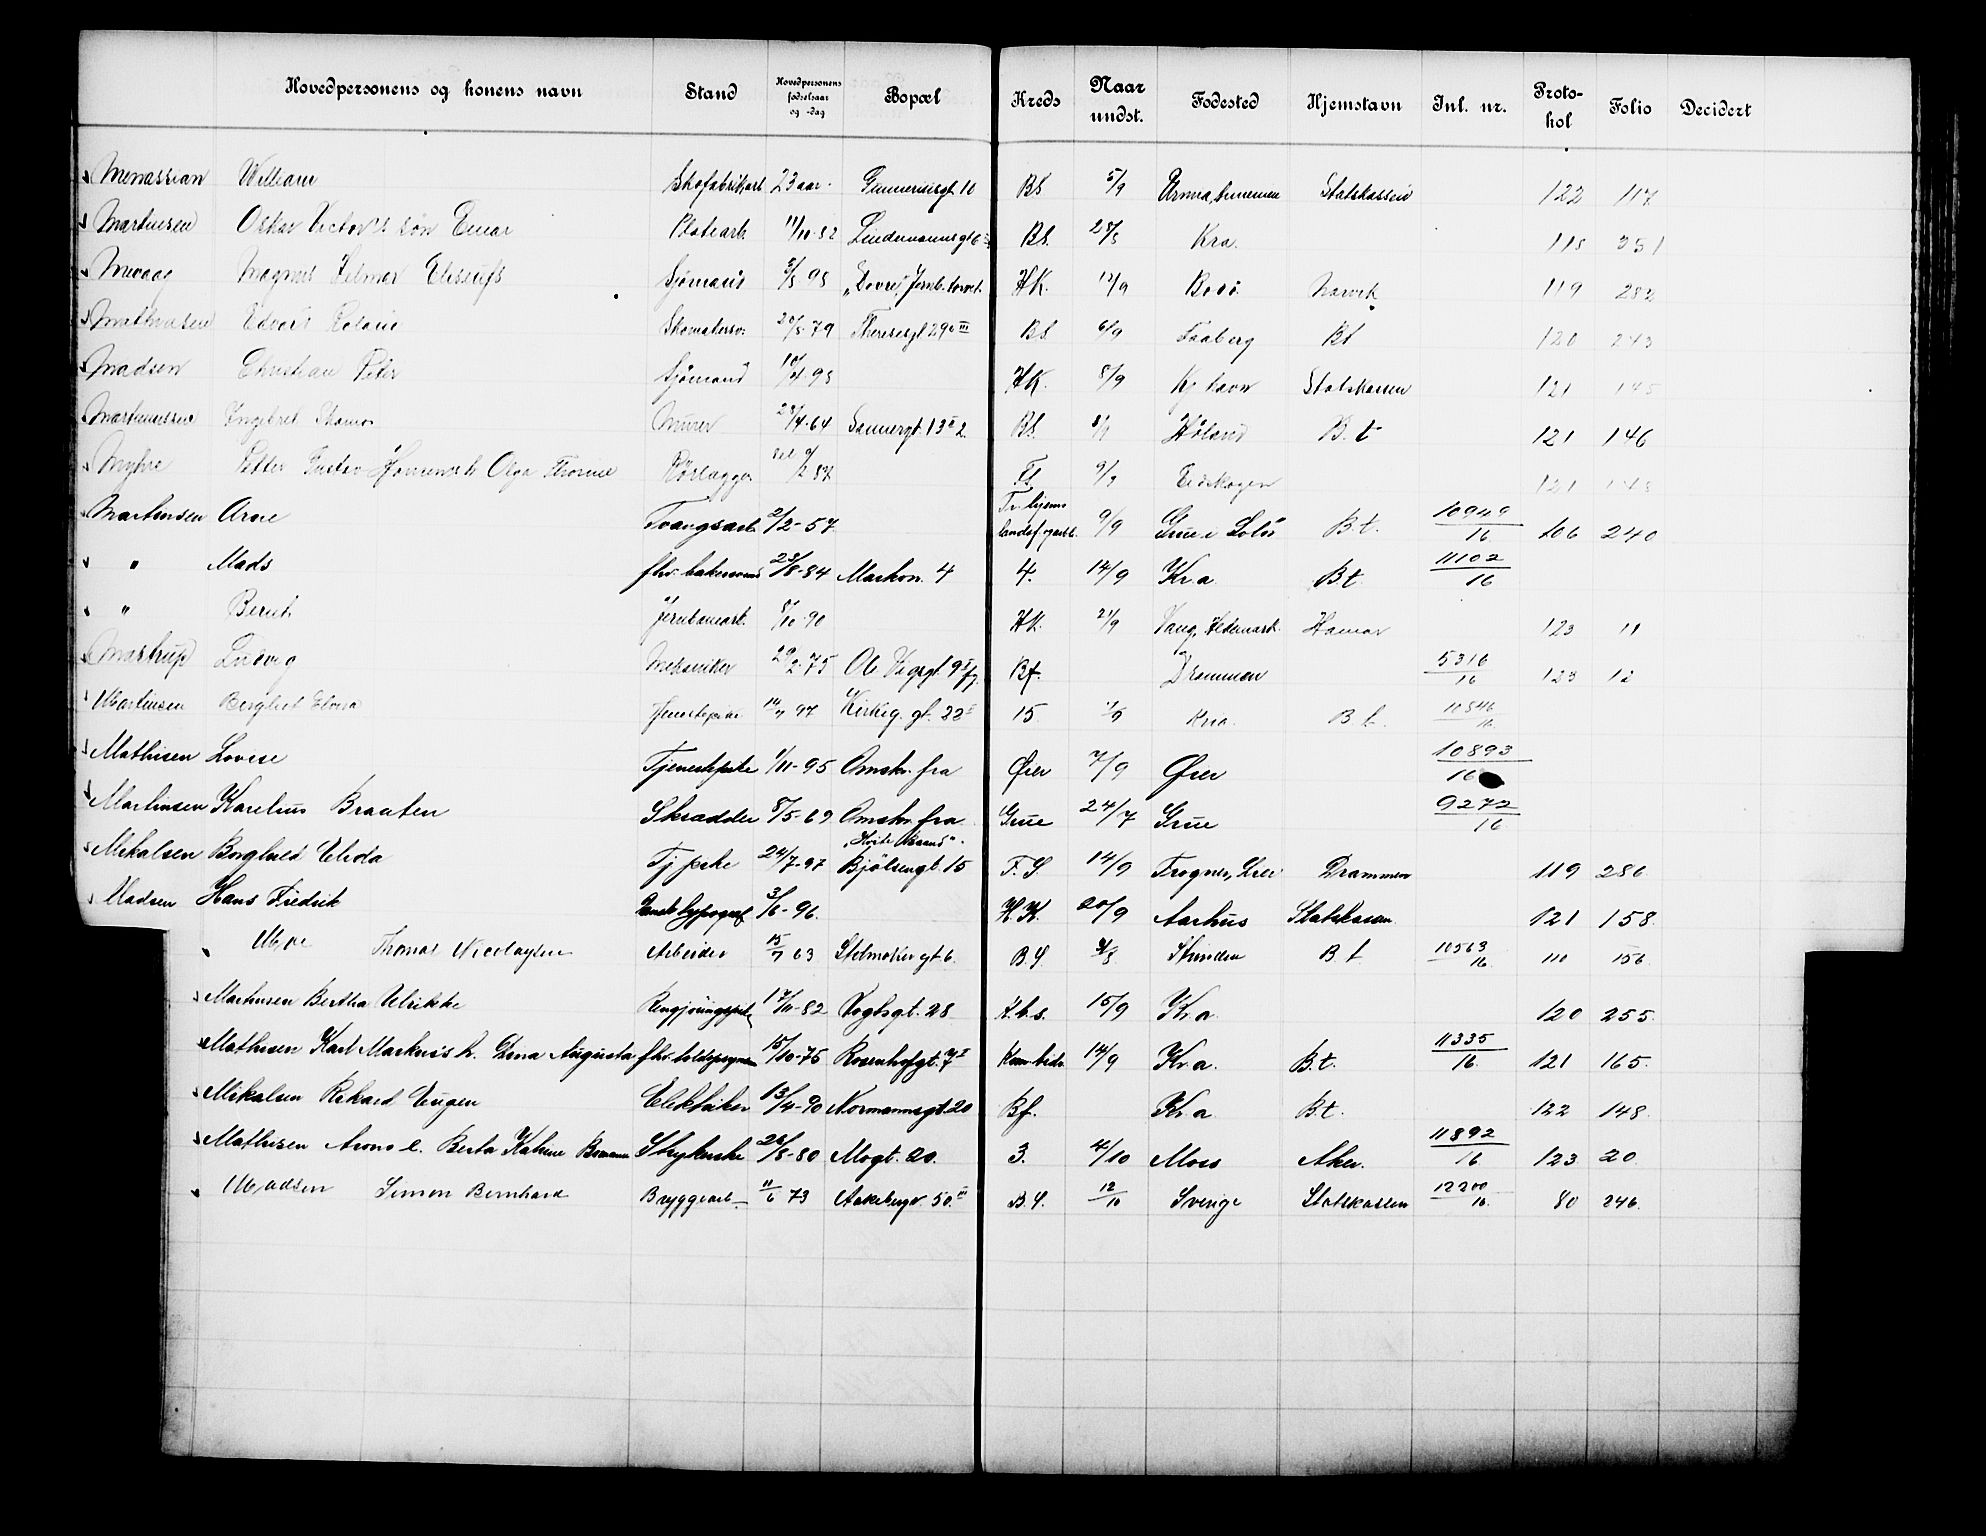 Hovedpersonens og konens navn Stand Hovedpersonens fødselsaar og -dag Bopæl Kreds Naar undst. Fødested Hjemstavn Inl. nr. Proto-kol Folio Decidert
Menassian William Skofabrikarb 23 aar. Gunneriusgt. 10 BS 5/9 Statskassen 122 117
Martinsen Oskar Victor's søn Einar Platearb. 11/10-82 Lindemannsgt 6 BS. 28/8 Kra. 118 251
Mevaag Magnus Hilmar Eliseufs Sjømand 5/5 95 „Dovre", Jernb. torvet. HK. 12/9 Bodø Narvik 119 282
Mathiasen Edvard Roland Skomakersv. 20/5-79 Theresesgt 29b III BS. 6/9 Faaberg Bt 120 243
Madsen Christian Peter Sjømand 10/4-95 HK. 8/9 Kj.havn Statskassen 121 145
Martinussen Ingebret Thomas Murer 28/4-64 Sannergt. 13 II 2. BS. 8/9 Høland B.t 121 146
Myhre Petter Gustav Hammersth Olga Thorine Rørlægger 9/2 87 Fl 9/9 Eidskogen 121 148
Martinsen Arne Tvangsarb. 2/2-57 Tv. hjems landsf. 9/9 Grue i Solør B.t. 10949/16 106 240
" Mads fhv. bakersvend 28/8-84 Markvn. 4 4. 14/9 Kr.a Bt. 11102/16
" Bernt Jernbanearb. 8/10-90 HK. 21/9 Vang, Hedemark. Hamar 123 11
Mastrup Ludvig Mekaniker 29/2-75 Ol. Ryesgt. 9 I fg. Bf. Drammen 5316/16 123 12
Martinsen Bergliot Elvira Tjenestepike 14/7 97 Kirkeg. gt. 22 I 15. 1/9 Kria. B t. 10546/16
Mathisen Lovise Tjenestepike 1/11-95 Omskr. fra Øier 7/9 Øier 10893/16
Martinsen Karelius Braaten Skrædder 8/5-69 Omskr. fra Grue 24/7 Grue 9272/16
Mikalsen Borghild Elida Tj pike 24/7-97 „Hvite Baand". Bjølsengt. 15 F. S. 14/9 Frogner, Lier Drammen 119 286
Madsen Hans Fredrik Dansk typograf 3/6-96. H.K. 20/9 Aarhus Statskassen 121 158.
Moe Thomas Nicolaysen Arbeider 15/7 63 Stolmakergt. 6. B.S. 31/8 Strinden B t 10563/16 110 156.
Martinsen Bertha Ulrikke Rengjøringspike 17/11-82 Vogtsgt. 28 K.b.s. 15/9 Kr.a 120 255.
Mathisen Karl Markus's h. Lina Augusta fhv. toldopsynsm 15/10-75 Rosenhofgt. 7 I Kommbidr. 14/9 Kr.a. B.t. 11335/16 121 165.
Mikalsen Rikard Eugen Elektriker 13/4-90 Normannsgt. 20 Bf. Kr.a Bt. 122 148.
Mathisen Arons e. Berta Katrine Strykerske 26/8-80 Mogt. 20. 3. 4/10 Moss Aker. 11892/16 123 20.
Madsen Simon Bernhard Bryggearb. 11/6 73 Aakebergv. 50. III B.S. 12/10 Sverige Statskassen 12200/16. 80 246.